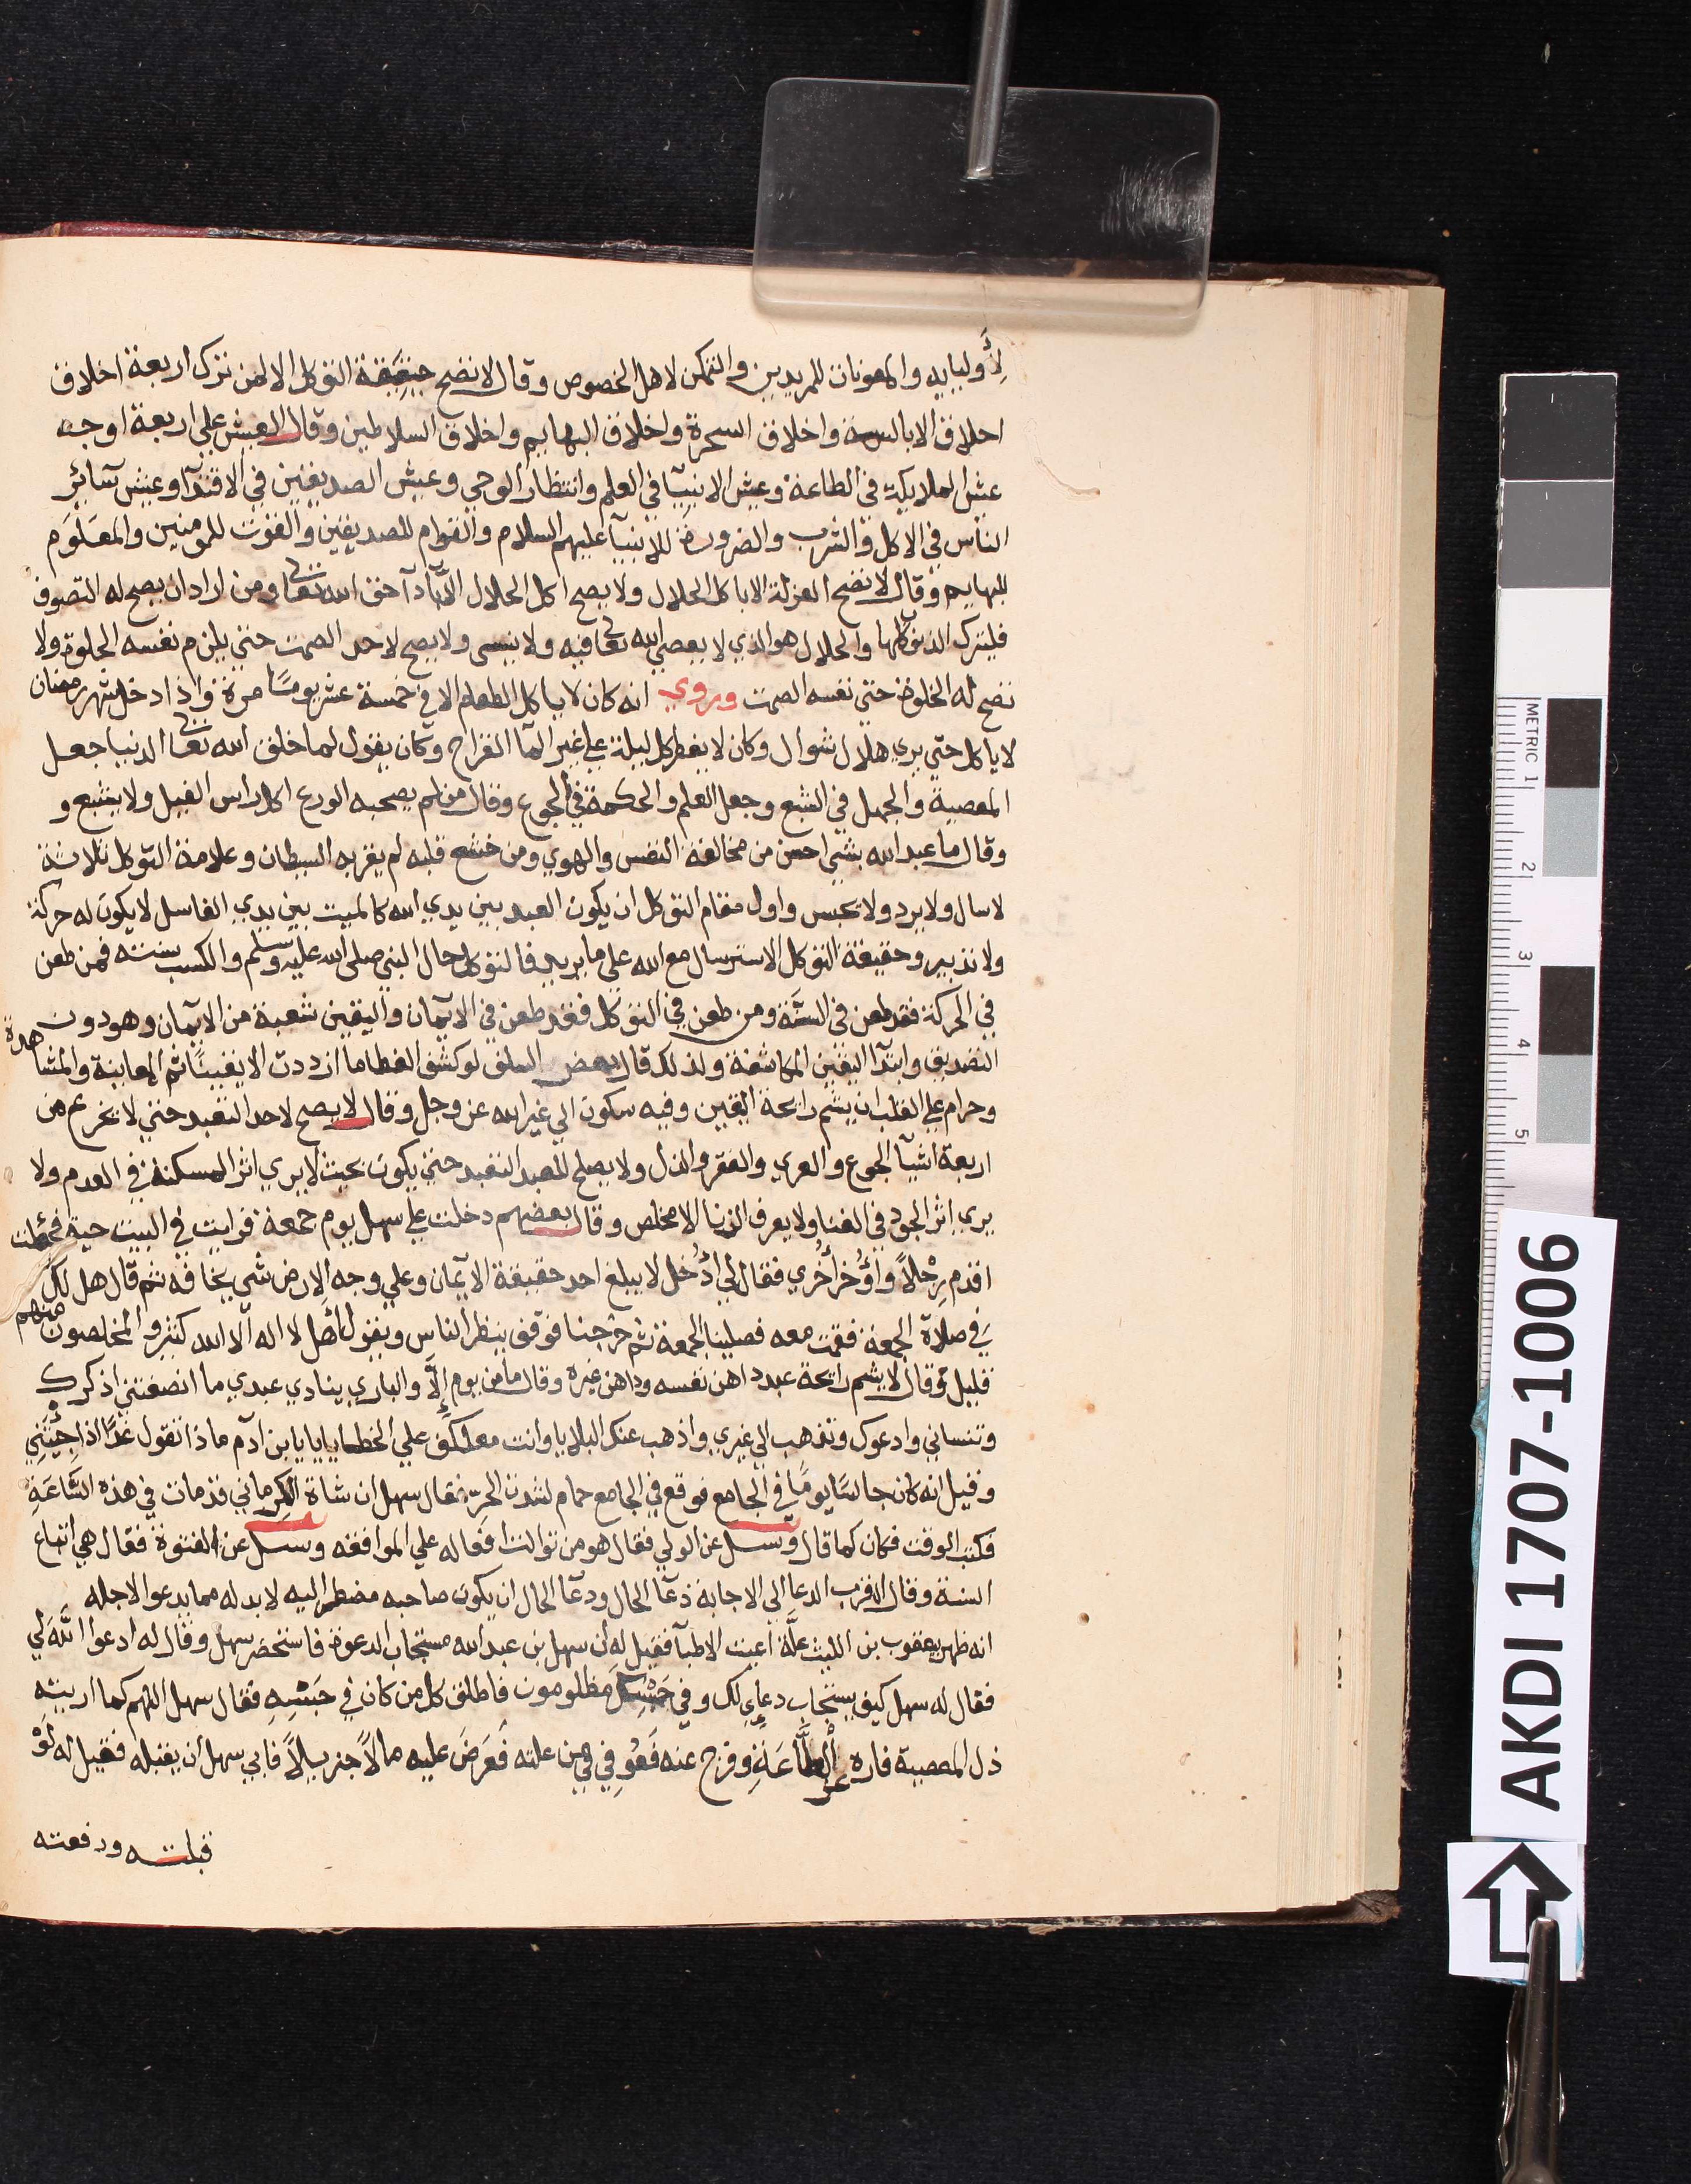 لأوليايه والمعونات للمريدين والتمكن لاهل الخصوص وقال لا تصح حقيقة التوكل الا لمن ترك اربعة اخلاق
اخلاق الابالسة واخلاق السحرة واخلاق البهايم واخلاق السلاطين وقال العيش على اربعة اوجه
عيش الملايكة في الطاعة وعيش الانبيآ في العلم وانتظار الوحي وعيش الصديقين في الاقتدآ وعيش سآئر
الناس في الاكل والشرب والضرورة للانبيآ عليهم السلام والقوام للصديقين والقوت للمومنين والمعلوم
للبهايم وقال لا تصح العزلة الا باكل الحلال ولا يصح اكل الحلال الا بادآ حق الله تعالى ومن اراد ان يصح له التصوف
فليترك الدنيا كلها والحلال هو الذي لا يعصي الله تعالى فيه ولا ينسى ولا يصح لاحد الصمت حتي يلزم نفسه الخلوة ولا
تصح له الخلوة حتي نفسه الصمت وروي انه كان لا ياكل الطعام الا في خمسة عشر يوما مرة واذا دخل شهر رمضان
لا ياكل حتي يري هلال شوال وكان لا يفطر كل ليلة علي غير المآ القراح وكان يقول لما خلق الله تعالى الدنيا جعل
المعصية والجهل في الشبع وجعل العلم والحكمة في الجوع وقال من لم يصحبه الورع اكل راس الفيل ولا يشبع و
وقال ما عبد الله بشي احسن من مخالفة النفس والهوي ومن خشع قلبه لم يقربه الشيطان وعلامة التوكل ثلاثة
لا سال ولا يرد ولا يحبس واول مقام التوكل ان يكون العبد بين يدي الله كالميت بين يدي الغاسل لا يكون له حركة
ولا تدبير وحقيقة التوكل الاسترسال مع الله علي ما يريد فالتوكل حال النبي صلى الله عليه وسلم والكسب سنته فمن طعن
في الحركة فقد طعن في السنة ومن طعن في التوكل فقد طعن في الايمان واليقين شعبة من الايمان وهو دون
التصديق وابتدآ اليقين المكاشفة ولذلك قال بعض السلف لو كشف الغطا ما ازددت الا يقينًا ثم المعاينة والمشاهدة
وحرام علي القلب ان يشم رائحة اليقين وفيه سكون الي غير الله عز وجل وقال لا يصح لاحد التعبد حتي لا يجزع من
اربعة اشيآ الجوع والعري والفقر والذل ولا يصلح للعبد التعبد حتي يكون بحيث لا يري اثر المسكنة في العدم ولا
يري اثر الجود في الغنا ولا يعرف الريا الا مخلص وقال بعضهم دخلت علي سهل يوم جمعة فرايت في البيت حية فجعلت
اقدم رِجْلاً واؤخر أُخْري فقال لي ادْخل لا يبلغ احد حقيقة الايمان وعلي وجه الارض شي يخافه ثم قال هل لك
في صلاة الجمعة فقمت معه فصلينا الجمعة ثم خرجنا فوقف ينظر الناس ويقول اهل لا اله الا الله كثير والمخلصون منهم
قليل وقال لا يشم رائحة عبد داهن نفسه وداهن غيره وقال ما من يوم إلاَّ والباري ينادي عبدي ما انصفتني اذكرك
وتنساني وادعوك وتذهب الي غيري واذهب عنك البلايا وانت معتكف علي الخطايا يا ابن ادم ماذا تقول غدًا اذا جيتني
وقيل انه كان جالسًا يومًا في الجامع فوقع في الجامع حمام لشدة الحر فقال سهل ان شاة الكرماني قد مات في هذه الساعة
فكتب الوقت فكان كما قال وسل عن الولي فقال هو من توالت افعاله علي الموافقه وسل عن الفتوة فقال هي اتباع
السنة وقال اقرب الدعا الي الاجابة دعآ الحال ودعآ الحال ان يكون صاحبه مضطر اليه لا بد له مما يدعوا لاجله
انه ظهر بيعقوب بن الليث علَّة اعيت الاطبآ فقيل له ان سهل بن عبد الله مستجاب الدعوة فاستحضر سهل وقال له ادعوا اللَّه لي
فقال له سهل كيف يستجاب دعاءي لك وفي حبسك مظلومون فاطلق كل من كان في حَبْسِهِ فقال سهل اللهم كما اريته
ذل المعصية فاره عز الطَّاعَةِ وفرج عنه فَعُوفِي من علته فَعَرَضَ عليه مالاً جزيلاً فابي سهل أن يقبله فقيل له لَوْ
قبلته ودفعته
AKDI 1707-1006
METRIC 1 2 3 4 5